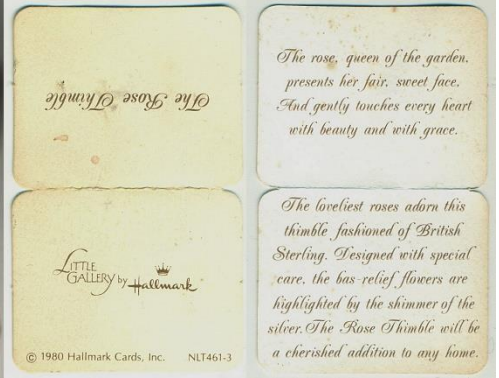 The Rose Thimble
LITTLE
GALLERY by Hallmark
© 1980 Hallmark Cards, Inc. NLT461-3
The rose, queen of the garden,
presents her fair, sweet face.
And gently touches every heart
with beauty and with grace.
The loveliest roses adorn this
thimble fashioned of British
Sterling. Designed with special
care, the bas-relief flowers are
highlighted by the shimmer of the
silver. The Rose Thimble will be
a cherished addition to any home.